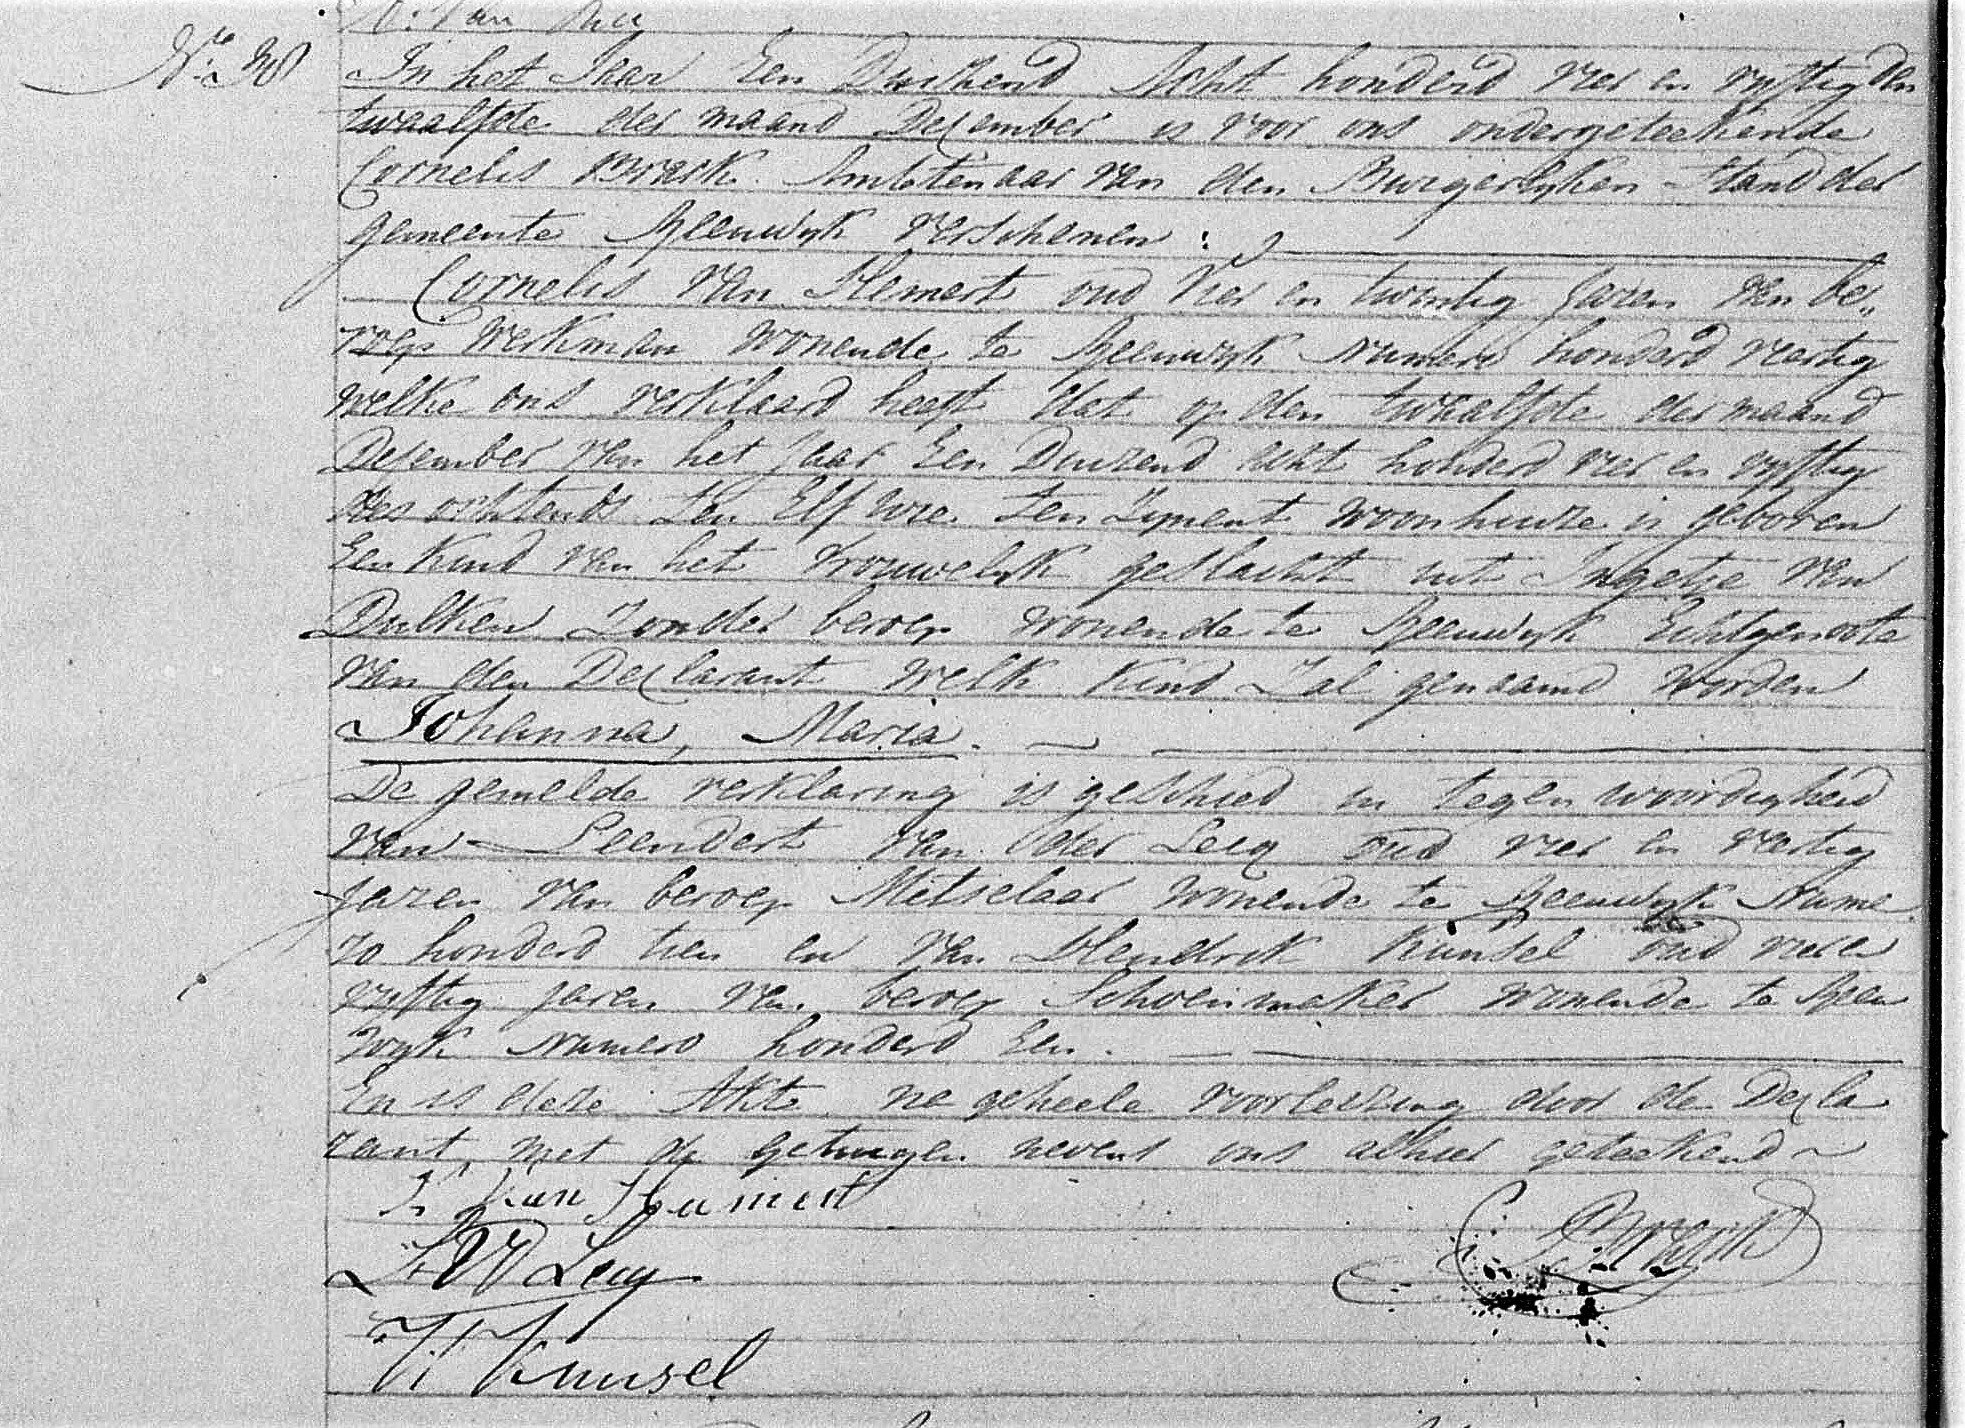 In het Jaar Een Duizend Acht honderd vier en vyftig den
twaalfde der maand December is voor ons ondergeteekende
Cornelis Ambtenaar van den Burgerlyken Stand der
gemeente verschenen :
Cornelis van Hemert oud Vier en twintig Jaren van be„
roep Werkman wonende te numero honderd veertig
welke ons verklaard heeft dat op den twaalfde der maand
December van het Jaar Een Duizend acht honderd vier en vyftig
des ochtends ten Elf ure ten zynent woonhuize is geboren
Een Kind van het Vrouwelyk geslacht uit Ingetje van
Dulken Zonder beroep wonende te Echtgenoote
van den Declarant welk Kind Zal genaamd worden
Johanna, Maria.
De gemelde verklaring is geschied in tegenwoordigheid
van Leendert van der Lecq oud vier en veertig
Jaren van beroep Metselaar wonende te Nume
ro honderd tien en van Hendrik Kunsel oud vier en
vyftig Jaren van beroep Schoenmaker wonende te
wyk numero honderd Een.
En is deze Akte na geheele voorlezing door de Decla
rant met de getuigen nevens ons alhier geteekend
van Hemert
L VD Lecq
H Kunsel